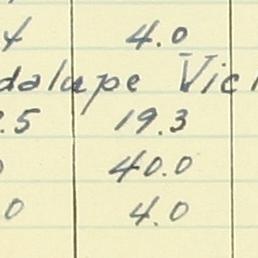 4 4.0
dalupe Vic
.5 19.3
0 40.0
0 4.0